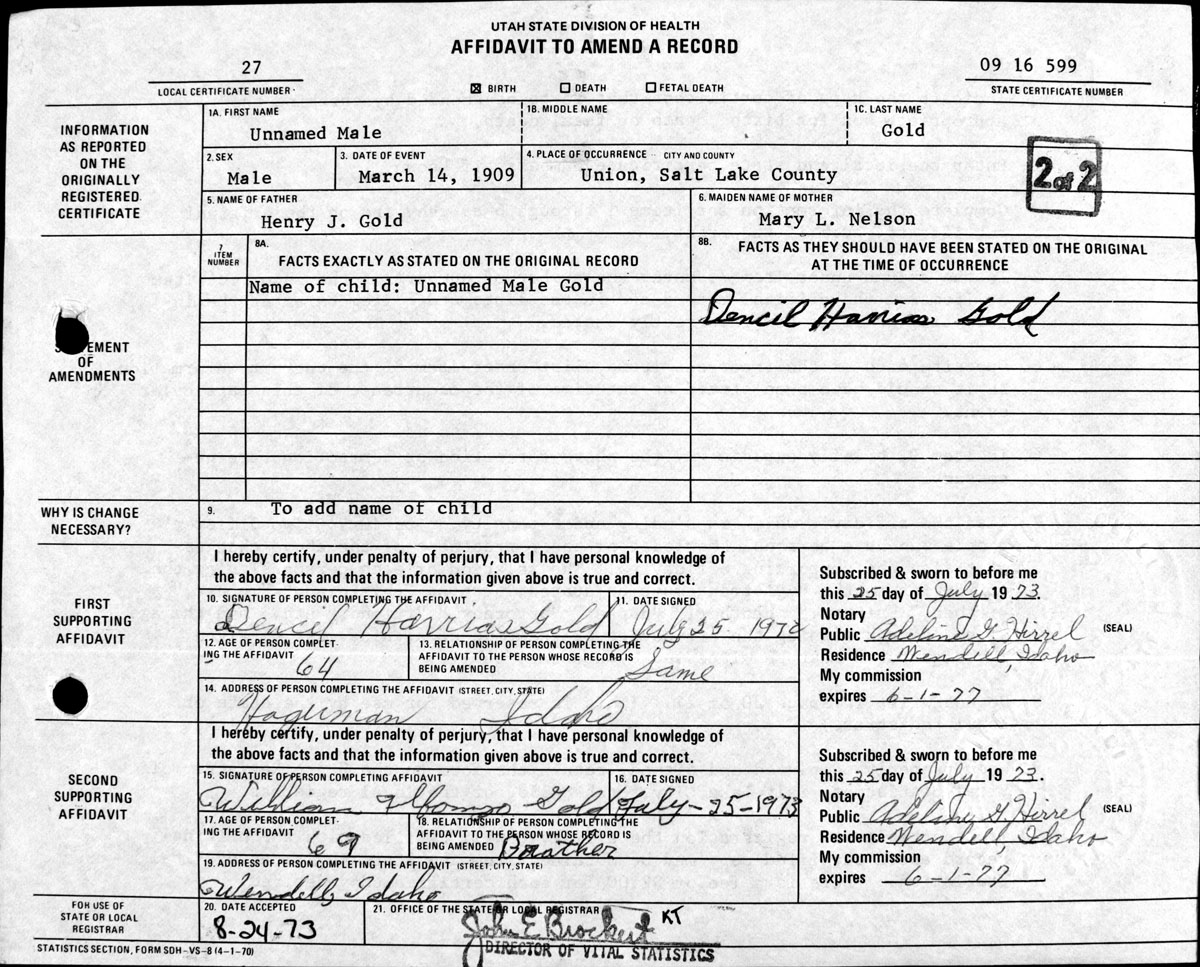 UTAH STATE DIVISION OF HEALTH
AFFIDAVIT TO AMEND A RECORD
27
LOCAL CERTIFICATE NUMBER
☒ BIRTH ☐ DEATH ☐ FETAL DEATH
09 16 599
STATE CERTIFICATE NUMBER
INFORMATION
AS REPORTED
ON THE
ORIGINALLY
REGISTERED
CERTIFICATE
1A. FIRST NAME
Unnamed Male
1B. MIDDLE NAME
1C. LAST NAME
Gold
2. SEX
Male
3. DATE OF EVENT
March 14, 1909
4. PLACE OF OCCURRENCE -- CITY AND COUNTY
Union, Salt Lake County
2 of 2
5. NAME OF FATHER
Henry J. Gold
6. MAIDEN NAME OF MOTHER
Mary L. Nelson
7
ITEM
NUMBER
8A.
FACTS EXACTLY AS STATED ON THE ORIGINAL RECORD
8B.
FACTS AS THEY SHOULD HAVE BEEN STATED ON THE ORIGINAL
AT THE TIME OF OCCURRENCE
OF
AMENDMENTS
Name of child: Unnamed Male Gold
Dencil Harrias Gold
WHY IS CHANGE
NECESSARY?
9.
To add name of child
FIRST
SUPPORTING
AFFIDAVIT
I hereby certify, under penalty of perjury, that I have personal knowledge of
the above facts and that the information given above is true and correct.
10. SIGNATURE OF PERSON COMPLETING THE AFFIDAVIT
Dencil Harrias Gold
11. DATE SIGNED
July 25
12. AGE OF PERSON COMPLET-
ING THE AFFIDAVIT
64
13. RELATIONSHIP OF PERSON COMPLETING THE
AFFIDAVIT TO THE PERSON WHOSE RECORD IS
BEING AMENDED
Same
14. ADDRESS OF PERSON COMPLETING THE AFFIDAVIT (STREET, CITY, STATE)
Hagerman Idaho
Subscribed & sworn to before me
this 25 day of July 1973.
Notary
Public Adeline G. Hirrel (SEAL)
Residence Wendell, Idaho
My commission
expires 6-1-77
SECOND
SUPPORTING
AFFIDAVIT
I hereby certify, under penalty of perjury, that I have personal knowledge of
the above facts and that the information given above is true and correct.
15. SIGNATURE OF PERSON COMPLETING AFFIDAVIT
William Gold
16. DATE SIGNED
July-25-1973
17. AGE OF PERSON COMPLET-
ING THE AFFIDAVIT
69
18. RELATIONSHIP OF PERSON COMPLETING THE
AFFIDAVIT TO THE PERSON WHOSE RECORD IS
BEING AMENDED
Brother
19. ADDRESS OF PERSON COMPLETING THE AFFIDAVIT (STREET, CITY, STATE)
Wendell, Idaho
Subscribed & sworn to before me
this 25 day of July 1973.
Notary
Public Adeline G. Hirrel (SEAL)
Residence Wendell, Idaho
My commission
expires 6-1-77
FOR USE OF
STATE OR LOCAL
REGISTRAR
20. DATE ACCEPTED
8-24-73
21. OFFICE OF THE STATE OR LOCAL REGISTRAR
John E Brockert KT
DIRECTOR OF VITAL STATISTICS
STATISTICS SECTION, FORM SDH-VS-8 (4-1-70)